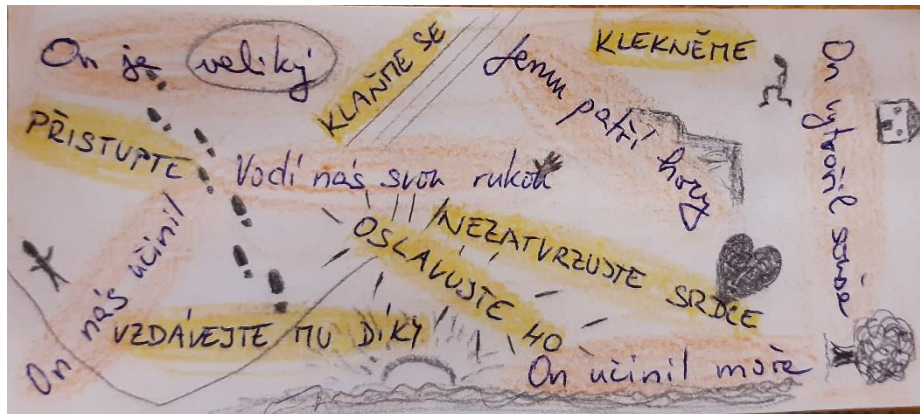 On je veliký
KLAŇME SE
Jemu patří hory
KLEKNĚME
On vytvořil souše
PŘISTUPTE
Vodí nás svou rukou
NEZATVRZUJTE SRDCE
OSLAVUJTE HO
On nás učinil
VZDÁVEJTE MU DÍKY
On učinil moře